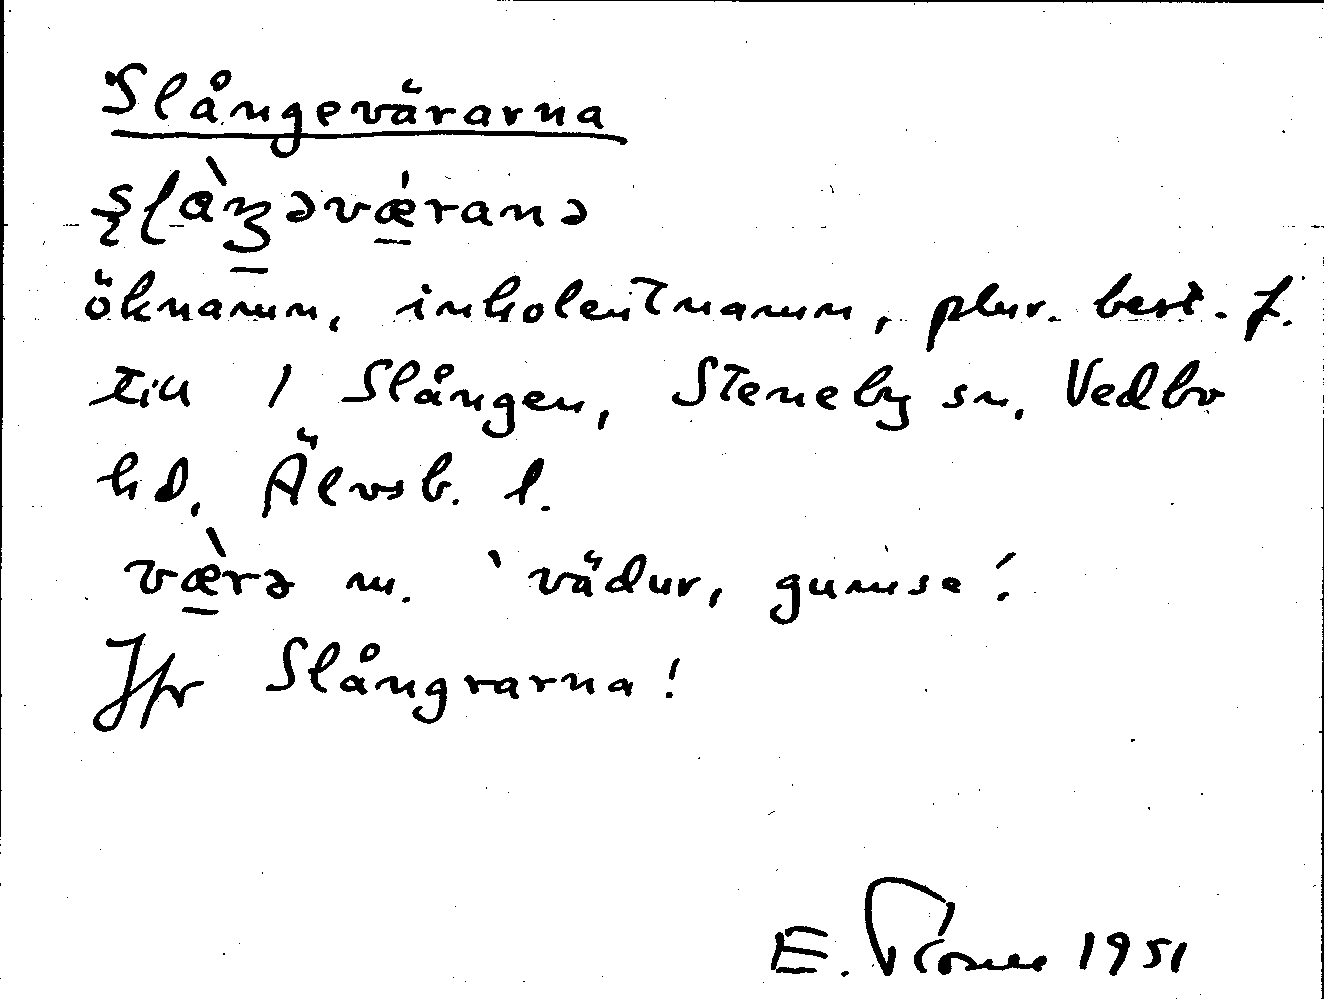 Slångevärarna
öknamn, inkolentnamn, plur. best. f.
till 1 Slången, Steneby sn, Vedbo
hd, Älvsb. l.
væ̀rə m. 'vädur, gumse'.
Jfr Slångrarna!
E. 1951